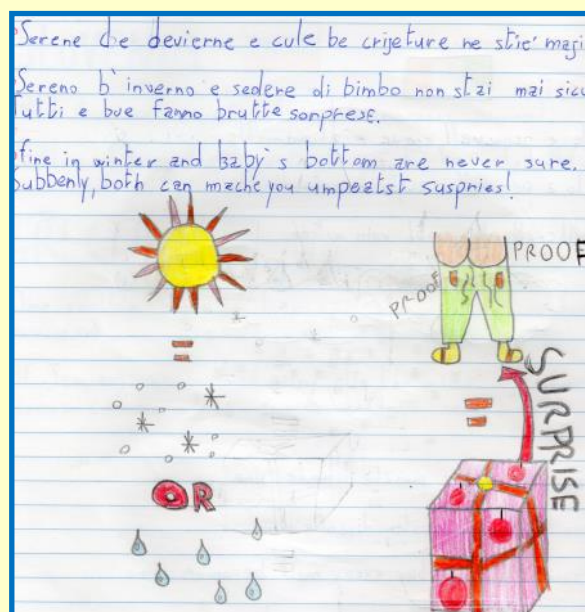 Serene che devierne e cule be crijeture ne stie' maji
Sereno b' inverno e sedere di bimbo non stai mai sicu
Tutti e bue fanno brutte sorprese.
fine in winter and baby's bottom are never sure.
Subbenly, both can mache you umpeatst suspries!
PROOF
PROOF
SURPRISE
OR